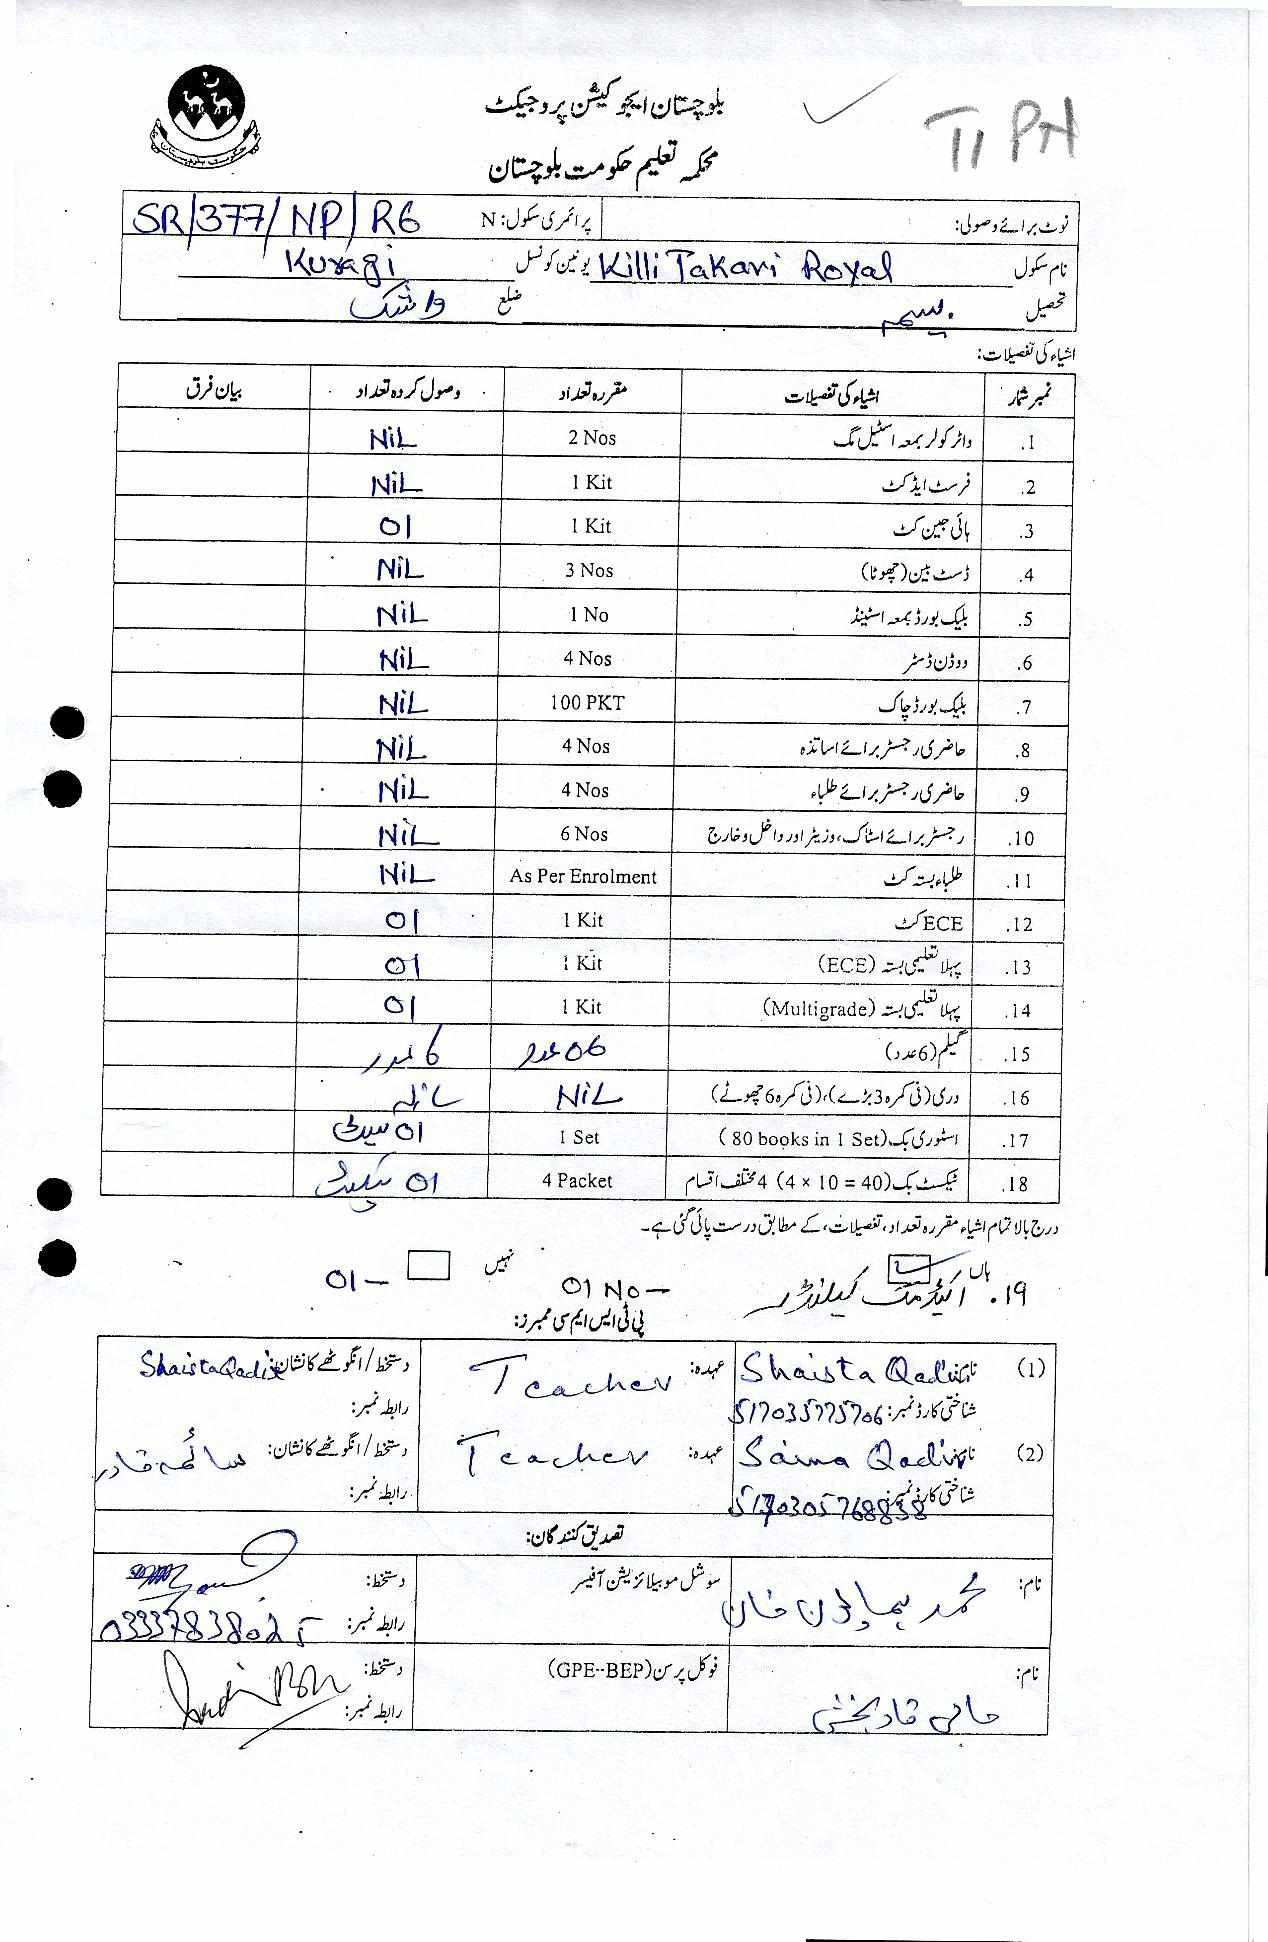 بلوچستان ایجوکیشن پروجیکٹ
TI PH
محکمہ تعلیم حکومت بلوچستان
نوٹ برائے وصولی: پرائمری سکول: N SR/377/NP/R6
نام سکول Killi Takari Royal یونین کونسل Kuragi
تحصیل بسیمہ ضلع واشک
اشیاء کی تفصیلات:
نمبر شمار اشیاء کی تفصیلات مقررہ تعداد وصول کردہ تعداد بیان فرق
1. واٹر کولر بمعہ اسٹیل مگ 2 Nos NiL
2. فرسٹ ایڈ کٹ 1 Kit NiL
3. ہائی جین کٹ 1 Kit 01
4. ڈسٹ بین (چھوٹا) 3 Nos NiL
5. بلیک بورڈ بمعہ اسٹینڈ 1 No NiL
6. ووڈن ڈسٹر 4 Nos NiL
7. بلیک بورڈ چاک 100 PKT NiL
8. حاضری رجسٹر برائے اساتذہ 4 Nos NiL
9. حاضری رجسٹر برائے طلباء 4 Nos NiL
10. رجسٹر برائے اسٹاک، وزیٹر اور داخل و خارج 6 Nos NiL
11. طلباء بستہ کٹ As Per Enrolment NiL
12. ECE کٹ 1 Kit 01
13. پہلا تعلیمی بستہ (ECE) 1 Kit 01
14. پہلا تعلیمی بستہ (Multigrade) 1 Kit 01
15. گیلم (6 عدد) 06 عدد 6 عدد
16. دری (فی کمرہ 3 بڑے)، (فی کمرہ 6 چھوٹے) NiL
17. اسٹوری بک (80 books in 1 Set) 1 Set 01 سیٹ
18. ٹیکسٹ بک (4 × 10 = 40) 4 مختلف اقسام 4 Packet 01 پیکٹ
درج بالا تمام اشیاء مقررہ تعداد، تفصیلات، کے مطابق درست پائی گئی ہے۔
ہاں نہیں
19. اکیڈمک کیلنڈر 01 No - 01 -
پی ٹی ایس ایم سی ممبرز:
(1) نام: Shaista Qadir عہدہ: Teacher دستخط / انگوٹھے کا نشان: Shaista Qadir
شناختی کارڈ نمبر: رابطہ نمبر:
(2) نام: Saima Qadir عہدہ: Teacher دستخط / انگوٹھے کا نشان: سائمہ قادر
شناختی کارڈ نمبر: رابطہ نمبر:
تصدیق کنندگان:
نام: محمد ہمایون خان سوشل موبیلائزیشن آفیسر دستخط:
رابطہ نمبر: 03337838025
نام: حاجی قادر بخش فوکل پرسن (GPE--BEP) دستخط:
رابطہ نمبر: